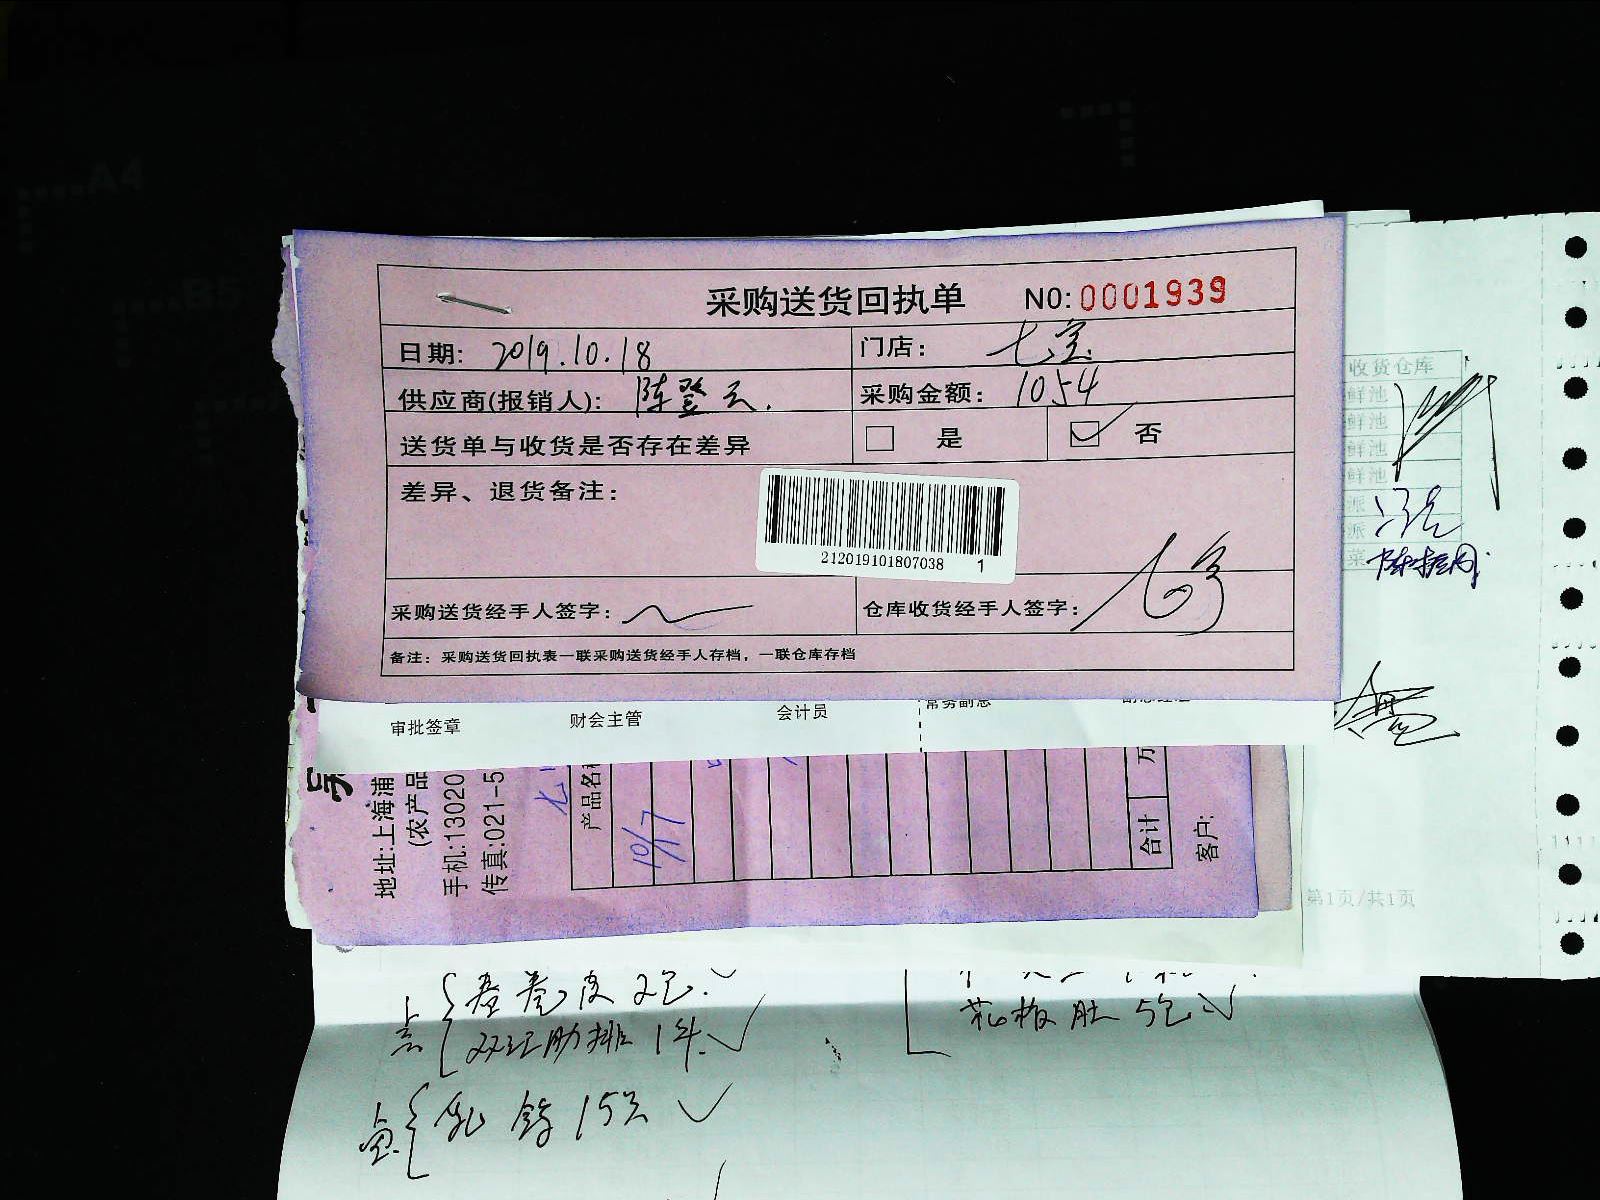 A4
B5
采购送货回执单 NO:0001939
日期: 2019.10.18 门店: 七宝
供应商(报销人): 陈登云. 采购金额: 1054
送货单与收货是否存在差异 是 否
差异、退货备注:
212019101807038 1
采购送货经手人签字: 仓库收货经手人签字:
备注: 采购送货回执表一联采购送货经手人存档, 一联仓库存档
收货仓库
鲜池
鲜池
鲜池
鲜池
派
派
菜
审批签章 财会主管 会计员 常务副总
地址:上海浦
(农产品
手机:13020
传真:021-5
产品名称
10/17
合计
万
客户:
第1页/共1页
春卷皮 2包.
双汇肋排 1件.
花板肚 5包
乳鸽 15只